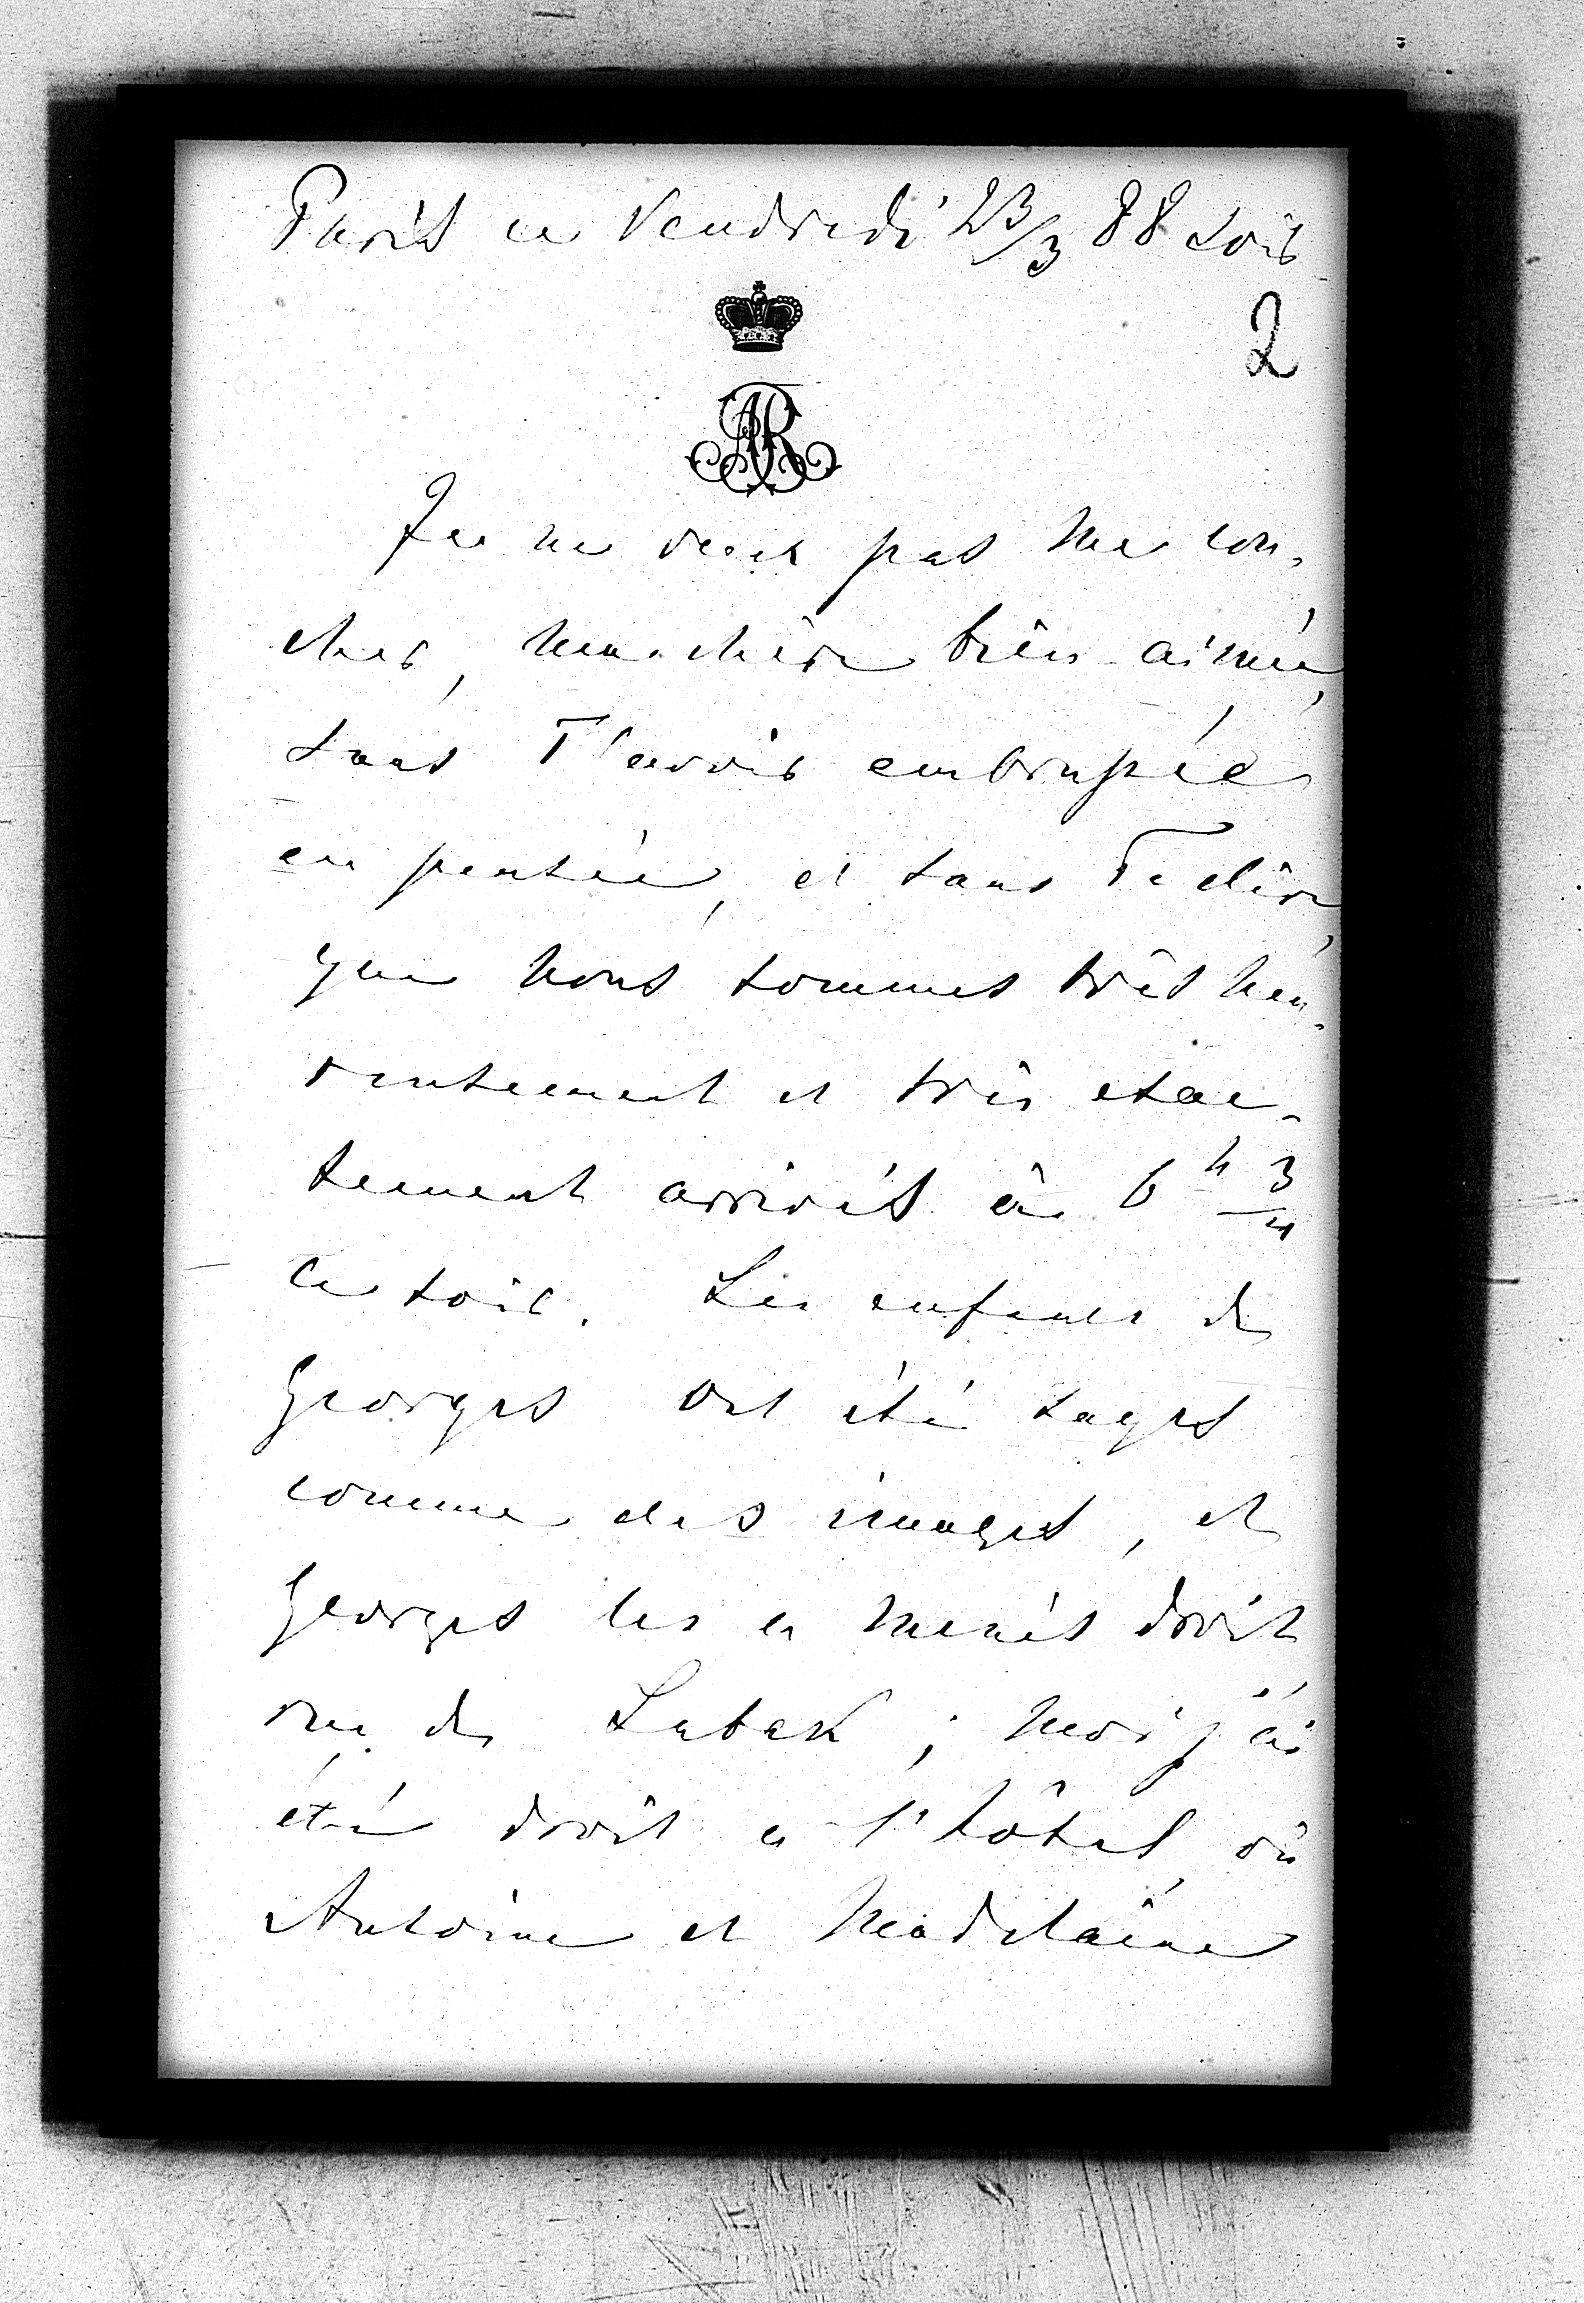 Paris ce Vendredi 23/3 88 soir
2
AR
Je ne veux pas me cou-
cher, ma chère bien aimée,
sans T'avoir embrassée
en pensée, et sans Te dire
que nous sommes très heu-
reusement et très exac-
tement arrivés à 6 h 3/4
ce soir. Les enfants de
Georges ont été sages
comme des images, et
Georges les a menés droit
rue de Lubek ; moi j'ai
été droit à l'hôtel, où
Antoine et Madelaine